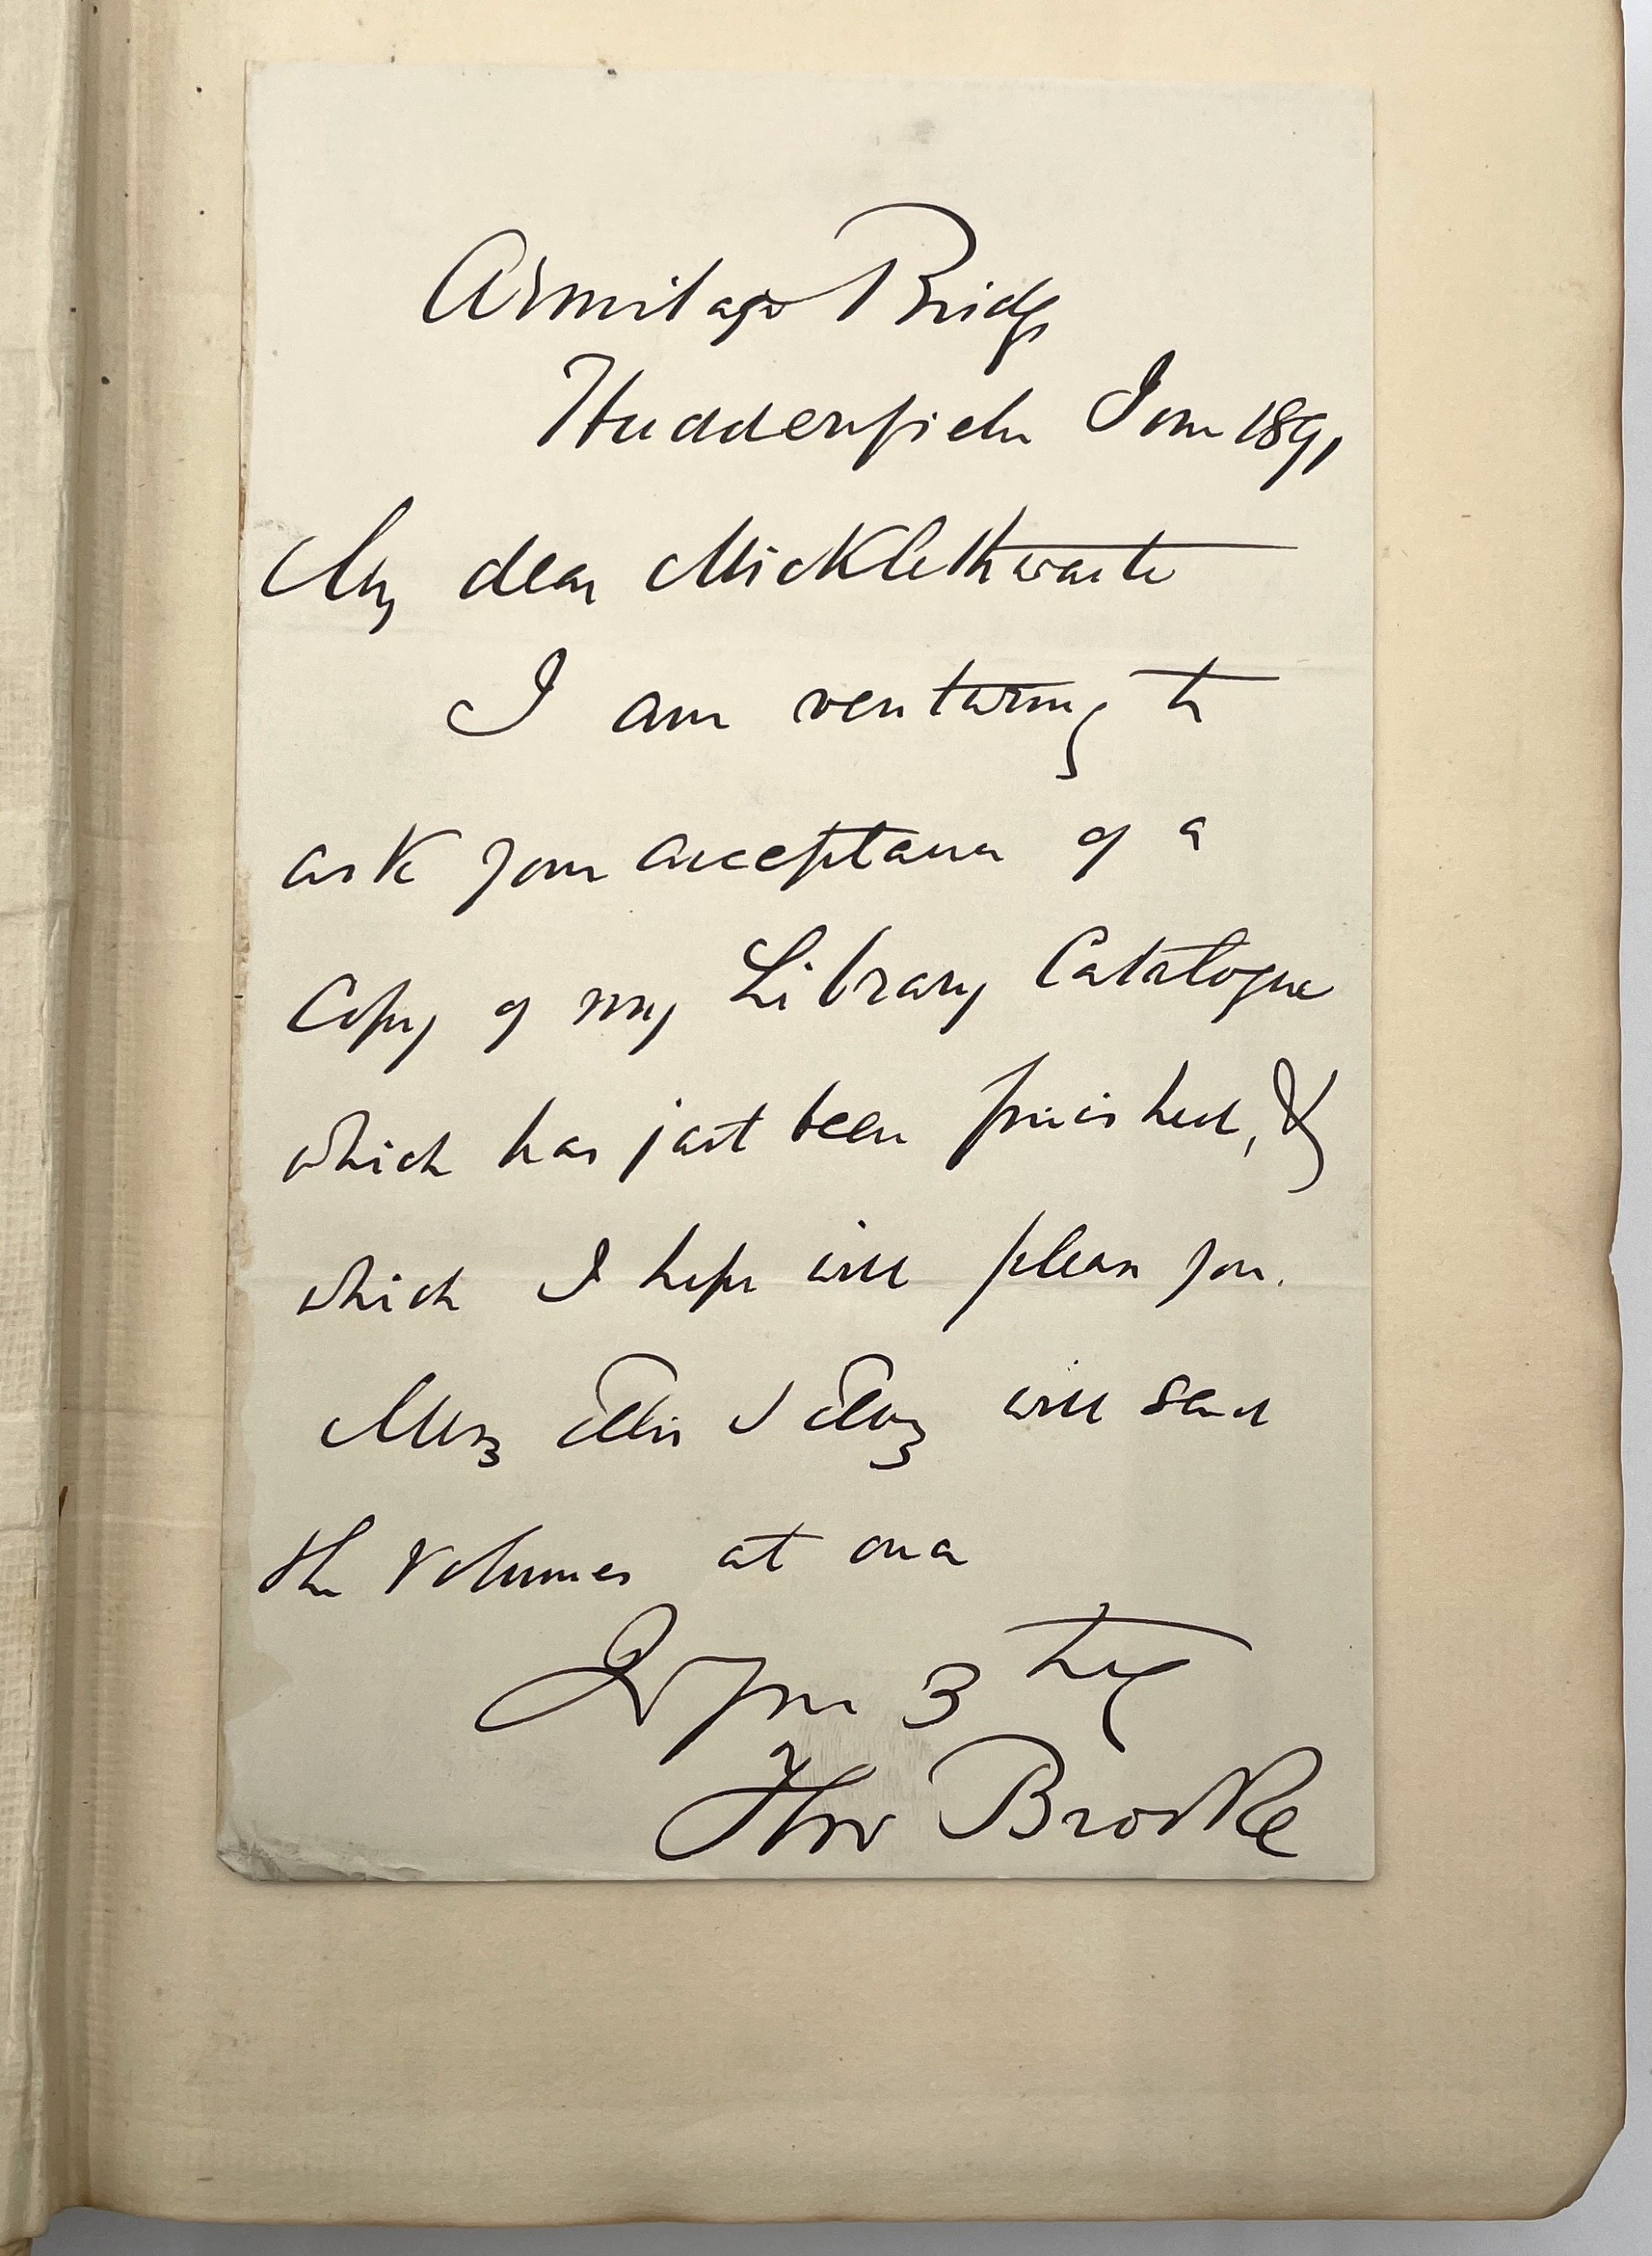 Armitage Bridge
Huddersfield June 1891
My dear Micklethwaite
I am venturing to
ask your acceptance of a
Copy of my Library Catalogue
which has just been finished, &
which I hope will please you.
Mess Ellis & Elvey will send
the volumes at once
Thos Brooke